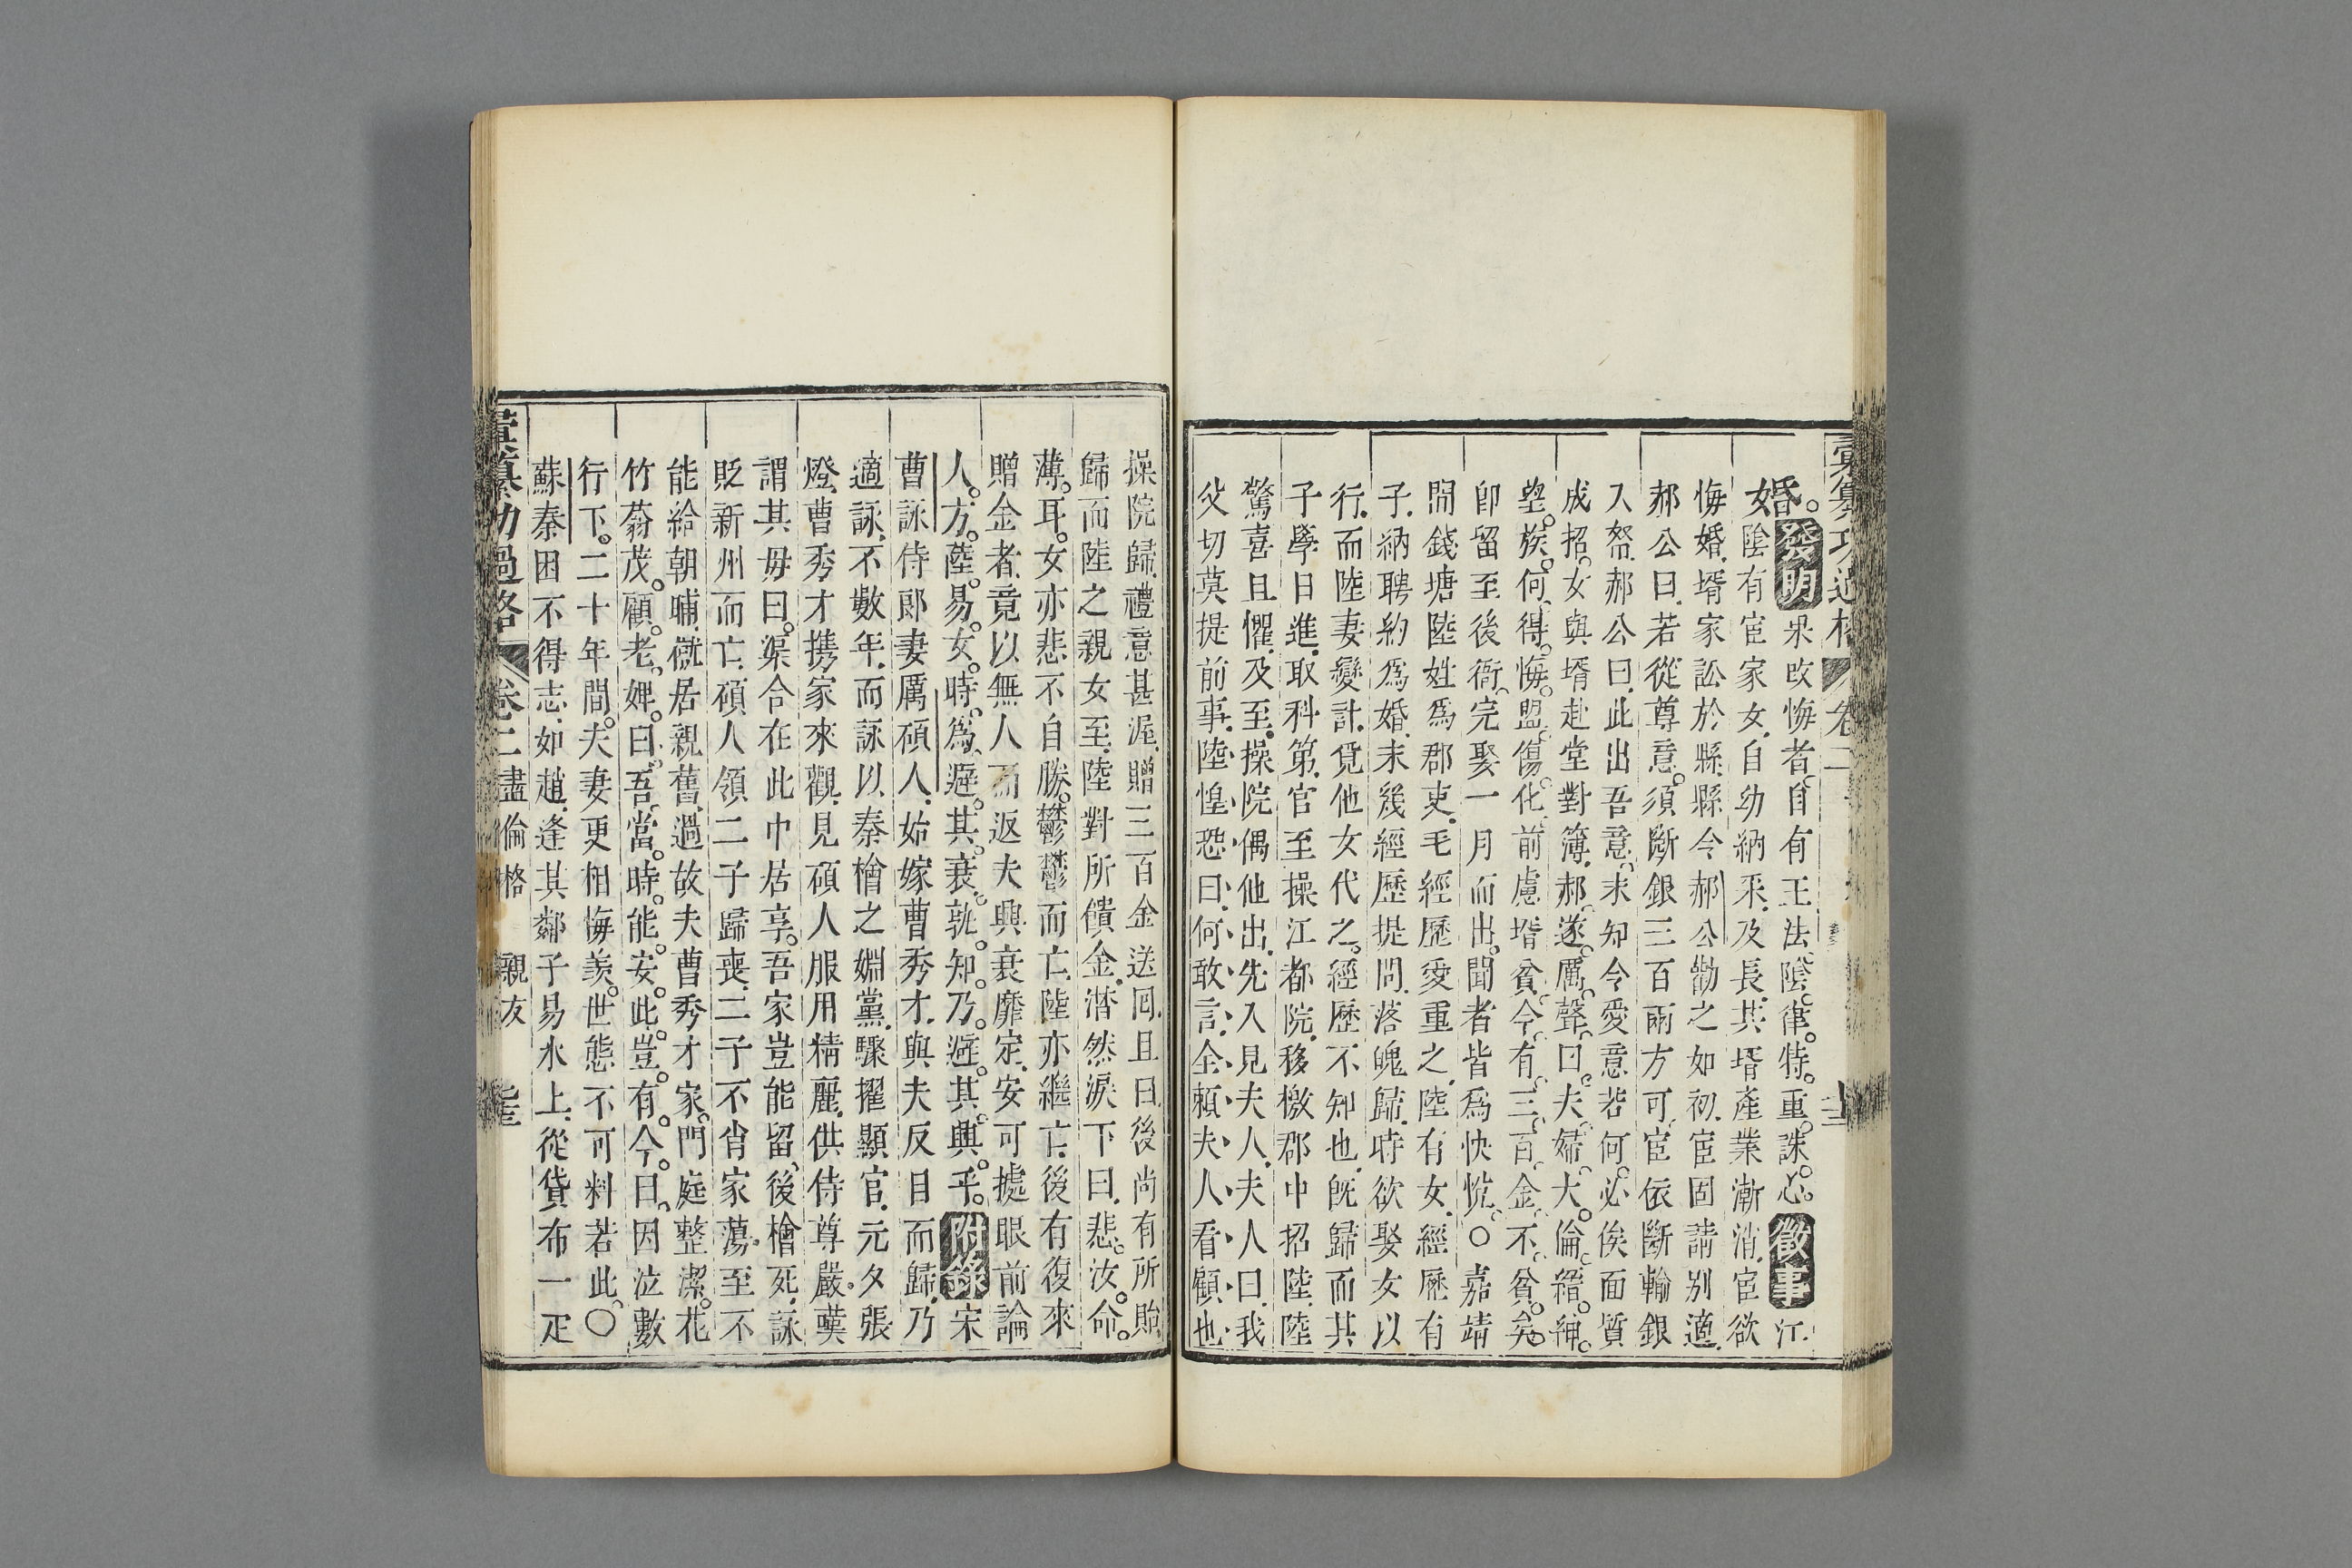 婚。發明果敗悔者自有王法陰律。特。重。誅。心。徵事江
陰有宦家女自幼納采及長其壻產業漸消宦欲
悔婚壻家訟於縣縣令郝公勸之如初宦固請別適
郝公曰若從尊意須斷銀三百兩方可宦依斷輸銀
入帑郝公曰此出吾意未知令愛意若何必俟面質
成招女與壻赴堂對簿郝遂厲聲曰夫婦大倫縉紳
望族何得悔盟傷化前慮壻貧今有三百金不貧矣
卽留至後衙完娶一月而出聞者皆爲快忱〇嘉靖
間錢塘陸姓爲郡吏毛經歷愛重之陸有女經歷有
子納聘約爲婚未幾經歷提問落魄歸時欲娶女以
行而陸妻變計覓他女代之經歷不知也旣歸而其
子學日進取科第官至操江都院移檄郡中招陸陸
驚喜且懼及至操院偶他出先入見夫人夫人曰我
父切莫提前事陸惶恐曰何敢言全賴夫人看顧也
操院歸禮意甚渥贈三百金送囘且曰後尚有所貽
歸而陸之親女至陸對所饋金潸然淚下曰悲汝命
薄耳女亦悲不自勝鬱鬱而亡陸亦繼亡後有復來
贈金者竟以無人而返夫興衰靡定安可據眼前論
人方陸易女時爲避其衰孰知乃避其興乎附錄宋
曹詠侍郎妻厲碩人始嫁曹秀才與夫反目而歸乃
適詠不數年而詠以秦檜之婣黨驟擢顯官元夕張
燈曹秀才携家來觀見碩人服用精麗供侍尊嚴嘆
謂其母曰渠合在此中居享吾家豈能留後檜死詠
貶新州而亡碩人領二子歸喪二子不肖家蕩至不
能給朝晡僦居親舊過故夫曹秀才家門庭整潔花
竹蓊茂顧老婢曰吾當時能安此豈有今日因泣數
行下二十年間夫妻更相悔羨世態不可料若此〇
蘇秦困不得志如趙逢其鄰子易水上從貸布一疋
彙纂功過格 卷二盡倫格 親友